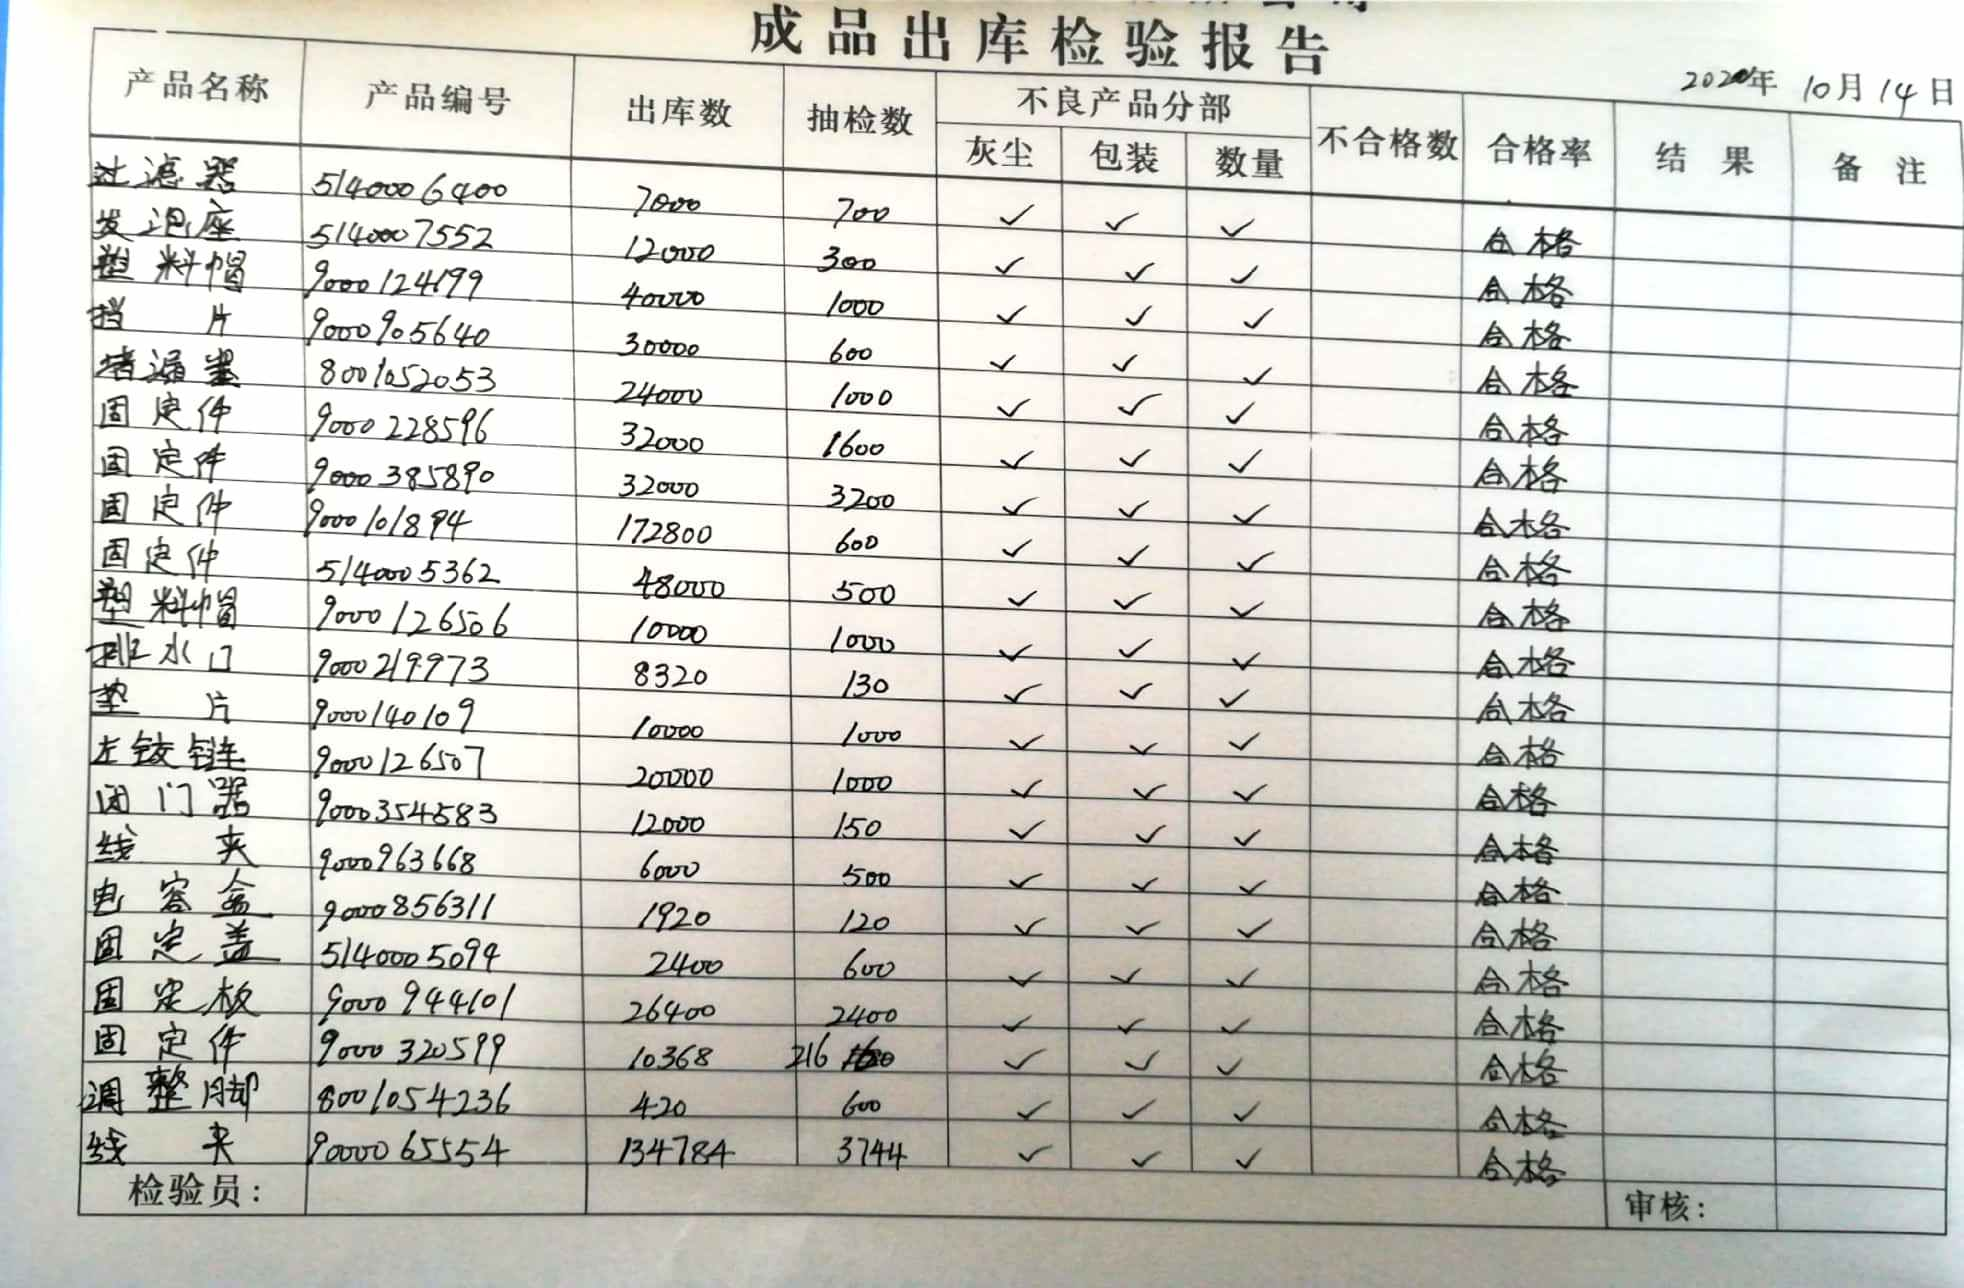 成品出库检验报告
2020年 10月 14日
产品名称 产品编号 出库数 抽检数 不良产品分部 不合格数 合格率 结果 备注
灰尘 包装 数量
过滤器 5140006400 7000 700 ✓ ✓ ✓ 合格
发泡座 5140007552 12000 300 ✓ ✓ ✓ 合格
塑料帽 9000124199 40000 1000 ✓ ✓ ✓ 合格
挡片 9000905640 30000 600 ✓ ✓ ✓ 合格
堵漏塞 8001052053 24000 1000 ✓ ✓ ✓ 合格
固定件 9000228596 32000 1600 ✓ ✓ ✓ 合格
固定件 9000385890 32000 3200 ✓ ✓ ✓ 合格
固定件 9000101894 172800 600 ✓ ✓ ✓ 合格
固定件 5140005362 48000 500 ✓ ✓ ✓ 合格
塑料帽 9000126506 10000 1000 ✓ ✓ ✓ 合格
排水口 9000219973 8320 130 ✓ ✓ ✓ 合格
垫片 9000140109 10000 1000 ✓ ✓ ✓ 合格
左铰链 9000126507 20000 1000 ✓ ✓ ✓ 合格
闭门器 9000354583 12000 150 ✓ ✓ ✓ 合格
线夹 9000963668 6000 500 ✓ ✓ ✓ 合格
电容盒 9000856311 1920 120 ✓ ✓ ✓ 合格
固定盖 5140005094 2400 600 ✓ ✓ ✓ 合格
固定板 9000944101 26400 2400 ✓ ✓ ✓ 合格
固定件 9000320599 10368 216 ✓ ✓ ✓ 合格
调整脚 8001054236 420 600 ✓ ✓ ✓ 合格
线夹 9000065554 134784 3744 ✓ ✓ ✓ 合格
检验员: 审核: